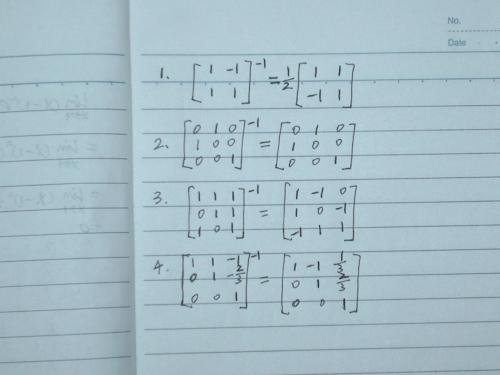 No.
Date
1. [1 -1; 1 1]^-1 = 1/2 [1 1; -1 1]
2. [0 1 0; 1 0 0; 0 0 1]^-1 = [0 1 0; 1 0 0; 0 0 1]
3. [1 1 1; 0 1 1; 1 0 1]^-1 = [1 -1 0; 1 0 -1; -1 1 1]
4. [1 1 -1; 0 1 -2/3; 0 0 1]^-1 = [1 -1 1/3; 0 1 2/3; 0 0 1]